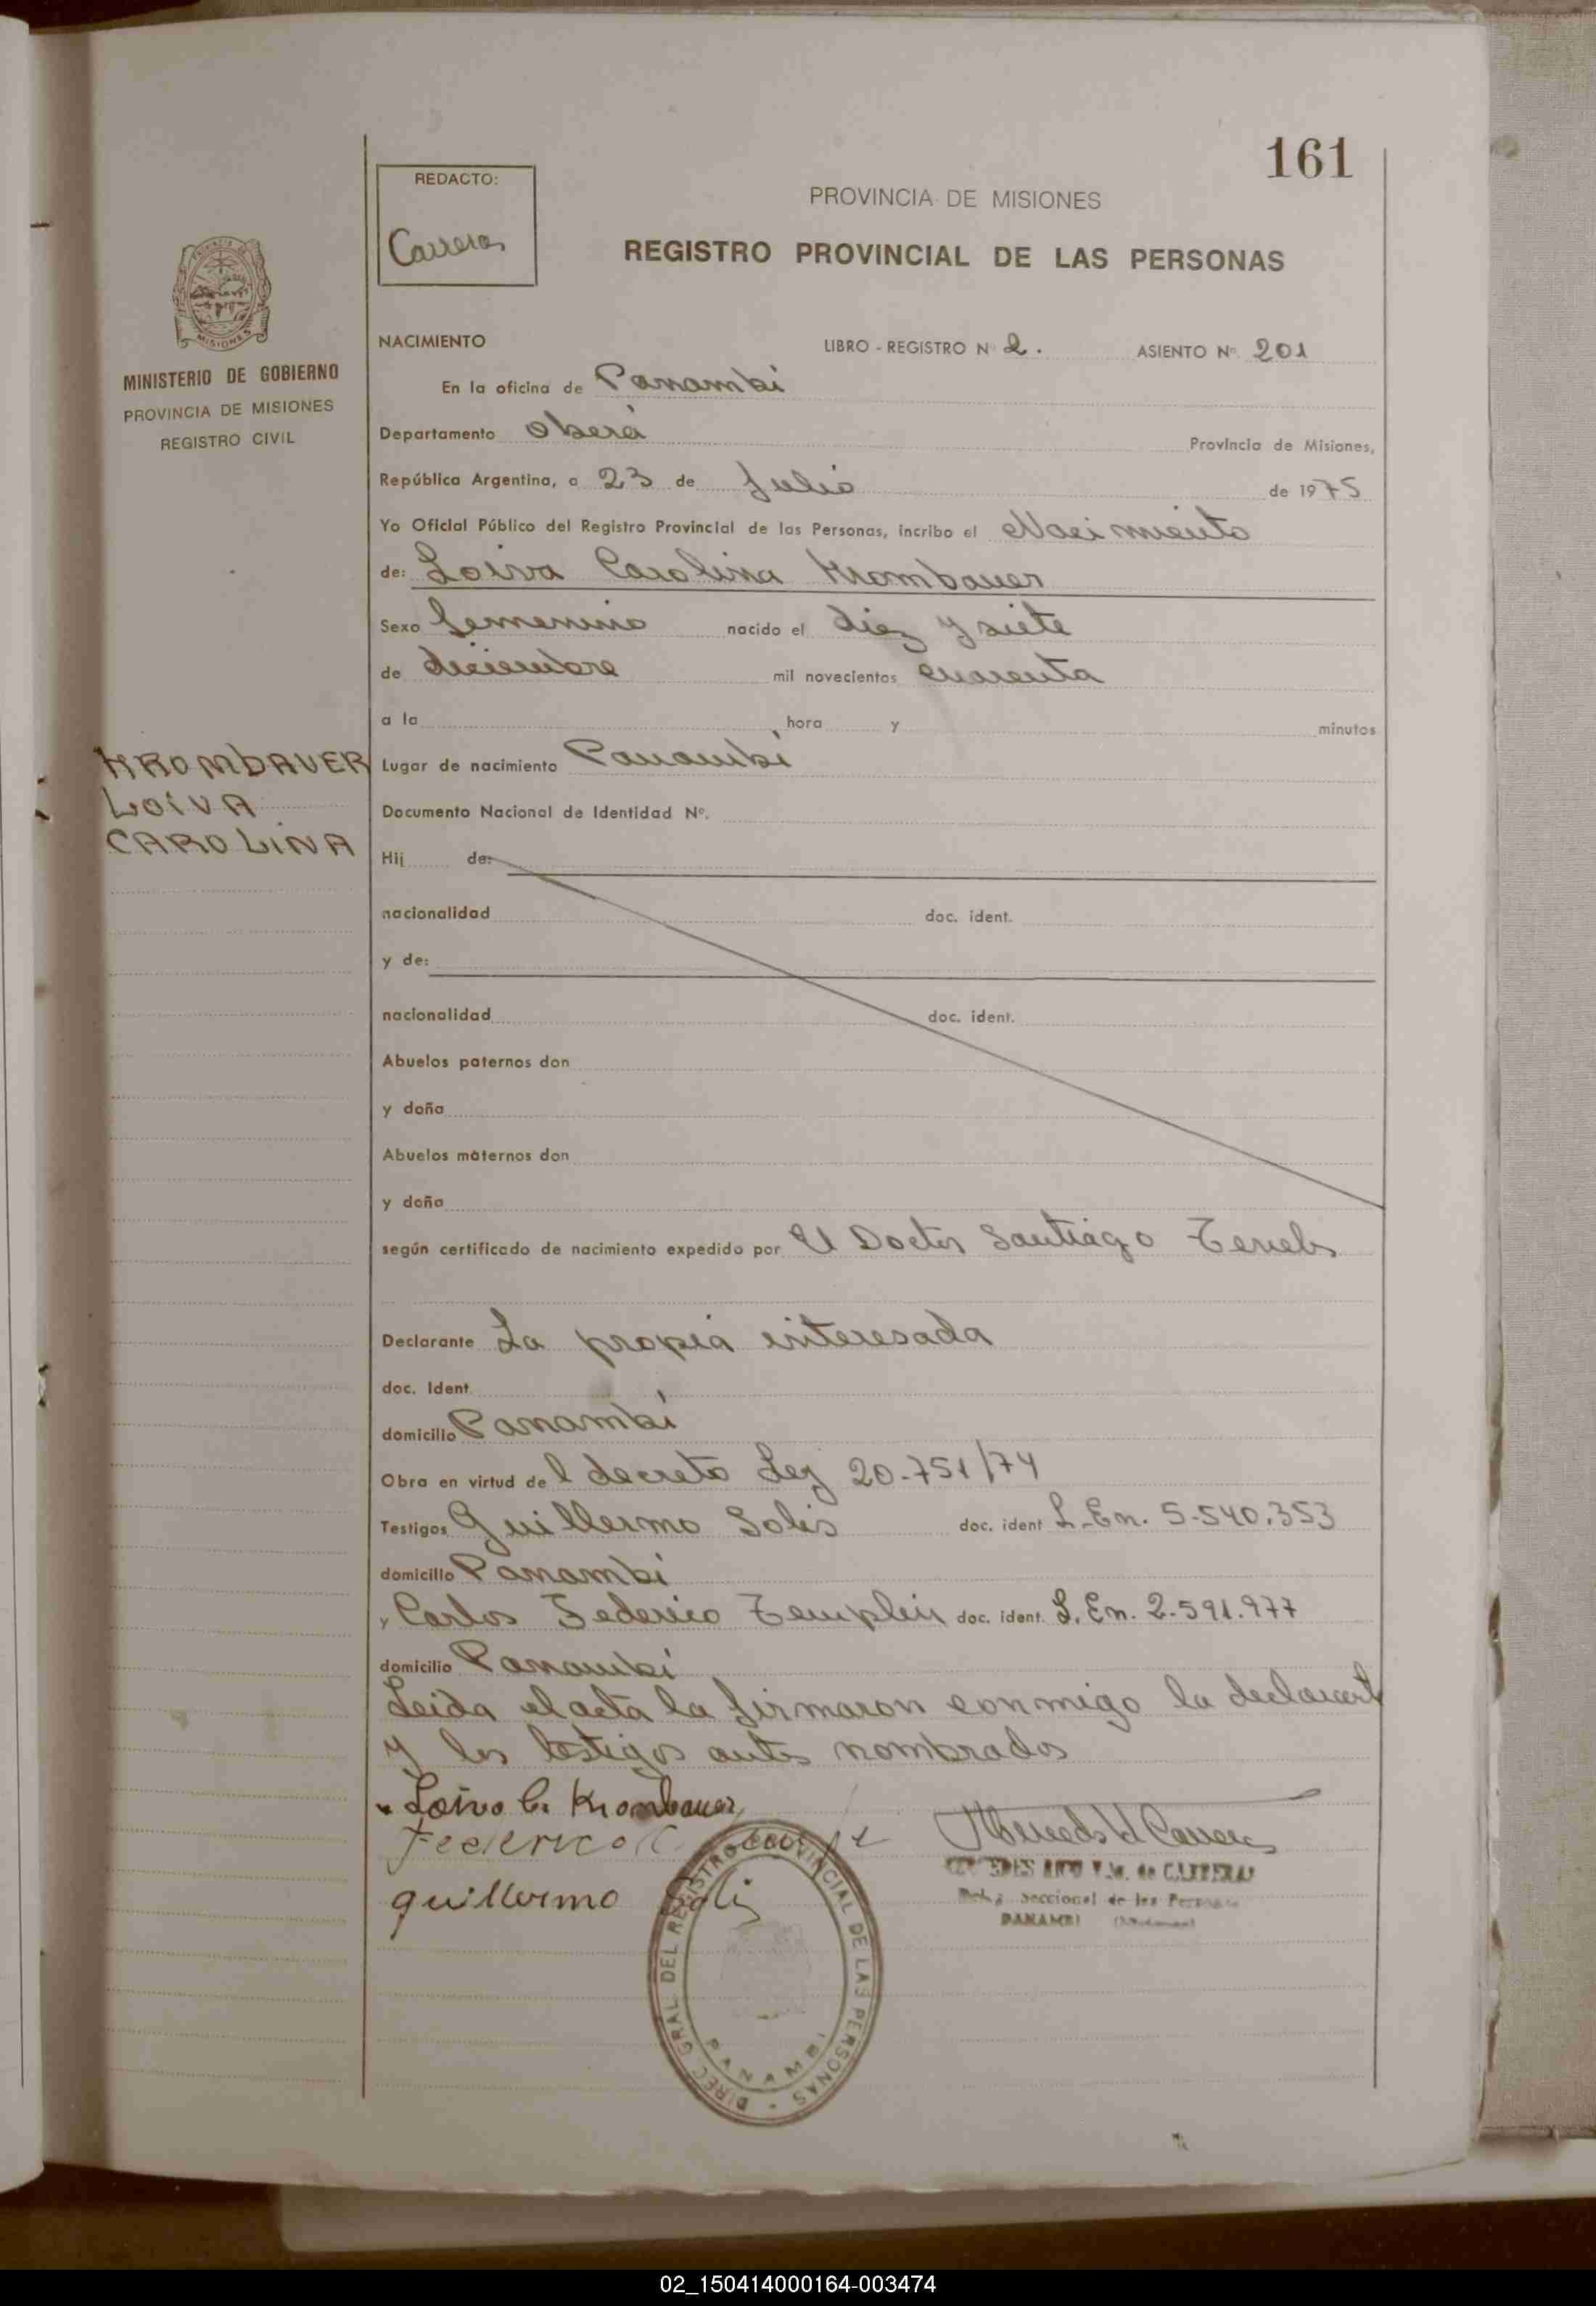 161
REDACTO:
Carreras
PROVINCIA DE MISIONES
REGISTRO PROVINCIAL DE LAS PERSONAS
MISIONES
MINISTERIO DE GOBIERNO
PROVINCIA DE MISIONES
REGISTRO CIVIL
NACIMIENTO LIBRO - REGISTRO N 2. ASIENTO Nº 201
En la oficina de Panambí
Departamento Oberá Provincia de Misiones,
República Argentina, a 23 de Julio de 1975
Yo Oficial Público del Registro Provincial de las Personas, incribo el Nacimiento
de: Loiva Carolina Krombauer
Sexo femenino nacido el diez y siete
de diciembre mil novecientos cuarenta
a la hora y minutos
KROMBAUER
LOIVA
CAROLINA
Lugar de nacimiento Panambí
Documento Nacional de Identidad Nº.
Hij de:
nacionalidad doc. ident.
y de:
nacionalidad doc. ident.
Abuelos paternos don
y doña
Abuelos maternos don
y doña
según certificado de nacimiento expedido por El Doctor Santiago
Declarante La propia interesada
doc. Ident
domicilio Panambí
Obra en virtud de l decreto Ley 20.751/74
Testigos Guillermo Solis doc. ident L.En. 5.540.353
domicilio Panambí
y Carlos Federico Templin doc. ident. L.En. 2.591.977
domicilio Panambí
Leida el acta la firmaron conmigo la declarant
y los testigos antes nombrados
Loiva C. Krombauer
Federico C
Guillermo Solis
de CARRERAS
Seccional de las
PANAMBI
DIREC. GRAL. DEL REGISTRO PROVINCIAL DE LAS PERSONAS
PANAMBI
02_150414000164-003474